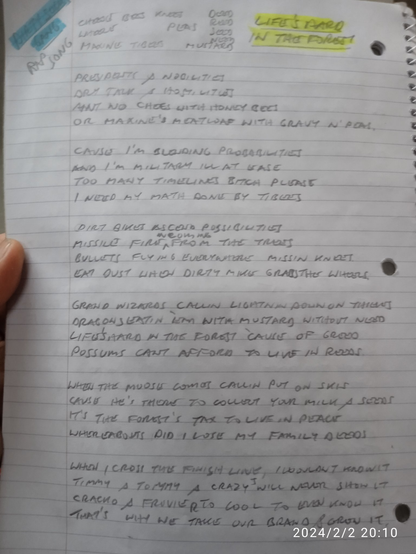 POP SONG
CHEESE BEES KNEES DEED
WHEELS PEAS REED
SEED
NEED
MAXINE TIBEES MUSTARD
LIFE'S HARD
IN THE FOREST
PROBABILITIES & NOBILITIES
DRY TALK & HOSTILITIES
AINT NO CHEES WITH HONEY BEES
OR MAXINE'S MEATLOAF WITH GRAVY N' PEAS.
CAUSE I'M BLENDING PROBABILITIES
AND I'M MILITARY ILL AT EASE
TOO MANY TIMELINES BITCH PLEASE
I NEED MY MATH DONE BY TIBEES
DIRT BIKES ASCEND POSSIBILITIES
MISSILES FIRE FROM THE TREES
BULLETS FLYING EVERYWHERE MISSIN KNEES
EAT DUST WHEN DIRTY MIKE GRABS THE WHEELS
GRAND WIZARDS CALLIN LIGHTNIN DOWN ON THINGS
DRAGONS EATIN 'EM WITH MUSTARD WITHOUT NEED
LIFE'S HARD IN THE FOREST 'CAUSE OF GREED
POSSUMS CANT AFFORD TO LIVE IN REEDS
WHEN THE MOOSE COMES CALLIN PUT ON SKIS
CAUSE HE'S THERE TO COLLECT YOUR MILK & SEEDS
IT'S THE FOREST'S TAX TO LIVE IN PEACE
WHEREABOUTS DID I LOSE MY FAMILY DEEDS
WHEN I CROSS THE FINISH LINE, I WOULDN'T KNOW IT
TIMMY & TOMMY & CRAZY WILL NEVER SHOW IT
TO COOL TO EVEN KNOW IT
THAT'S WHY WE TAKE OUR BRAND & GROW IT.
2024/2/2 20:10